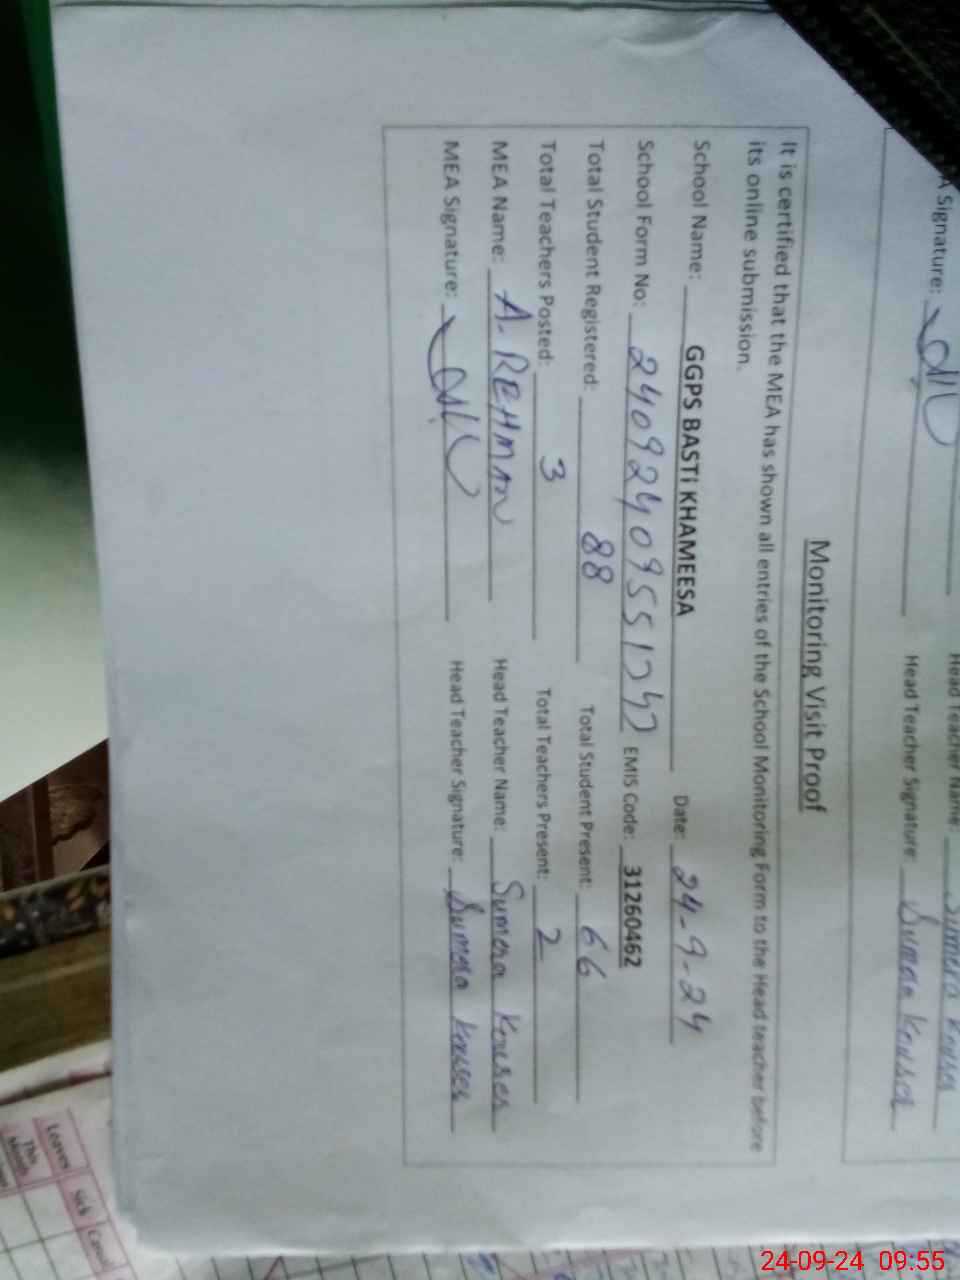 A Signature:
Head Teacher Name: Sumera Kouser
Head Teacher Signature: Sumera Kouser
Monitoring Visit Proof
It is certified that the MEA has shown all entries of the School Monitoring Form to the Head teacher before
its online submission.
School Name: GGPS BASTI KHAMEESA Date: 24-9-24
School Form No: EMIS Code: 31260462
Total Student Registered: 88 Total Student Present: 66
Total Teachers Posted: 3 Total Teachers Present: 2
MEA Name: A. REHMAN Head Teacher Name: Sumera Kouser
MEA Signature: Head Teacher Signature: Sumera Kouser
Leaves
This Month
Sick
Casual
24-09-24 09:55